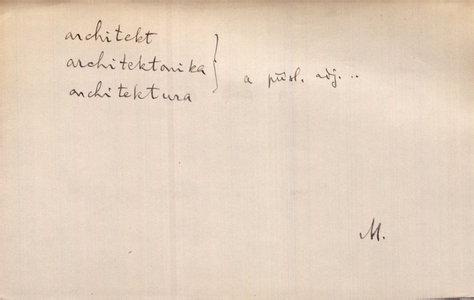 architekt
architektonika
architektura
a přísl. adj. ..
M.